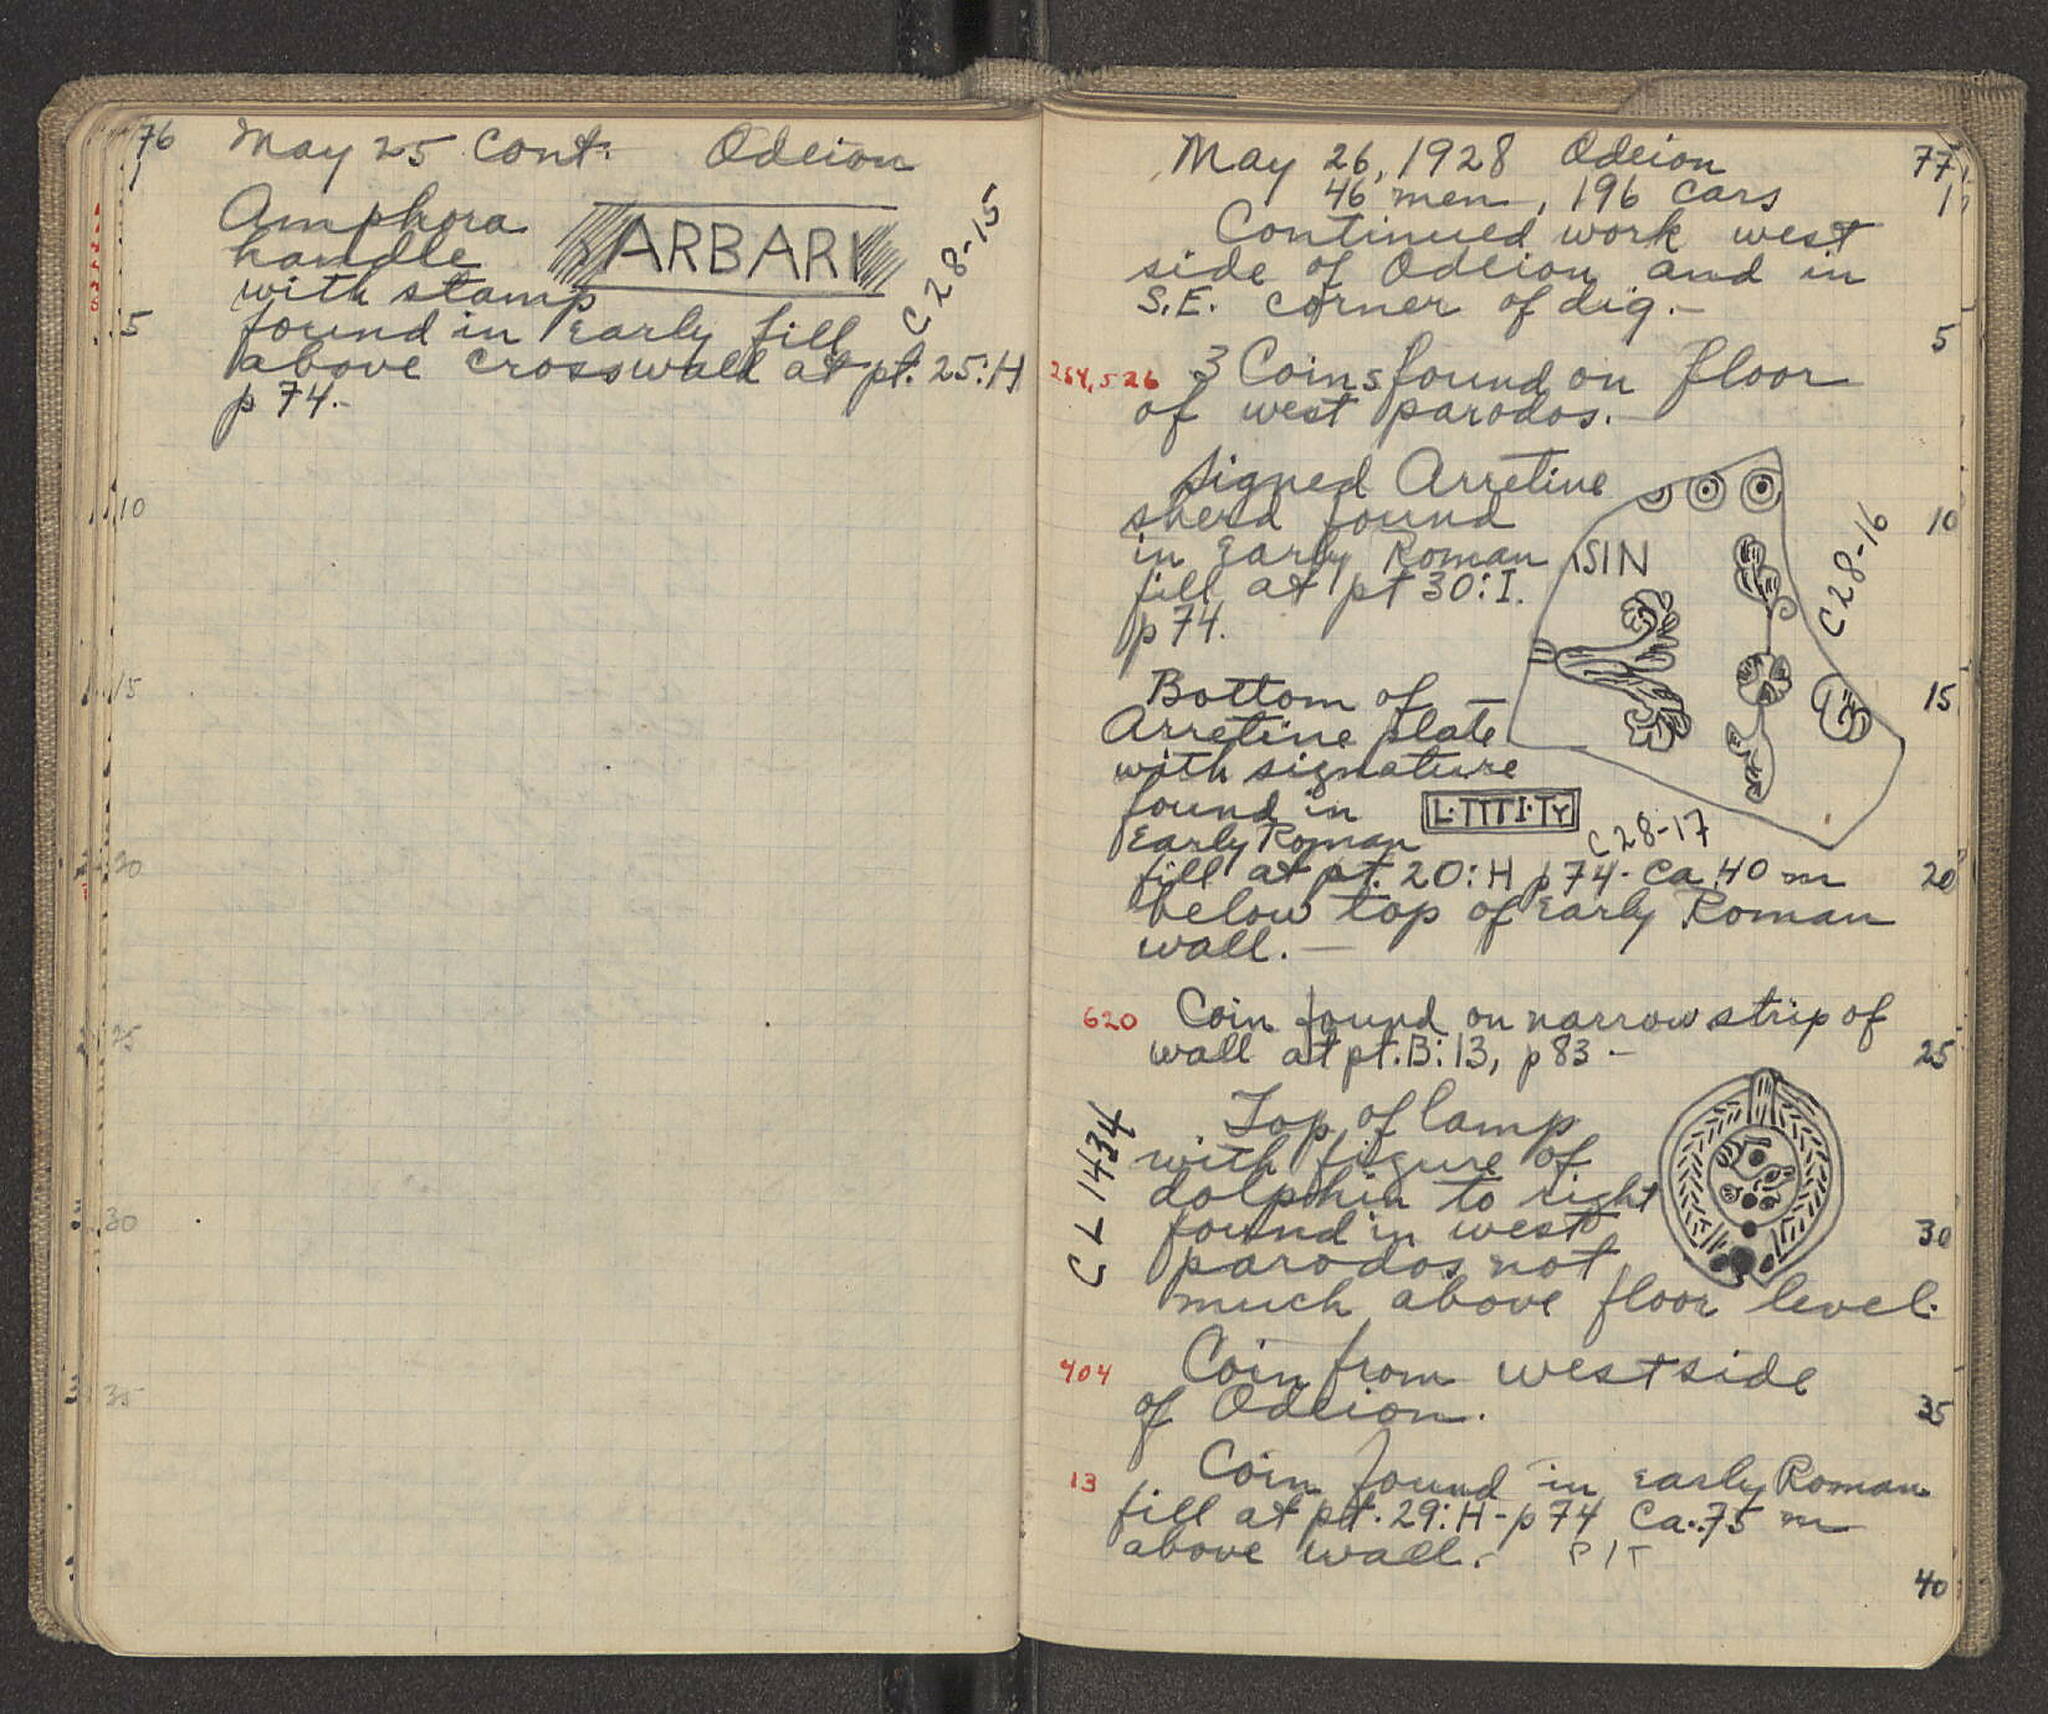 76
May 25 Cont. Odeion
Amphora
handle
with stamp
ARBARI
C 28-15
found in Early fill
above crosswall at pt. 25:H
p 74.-
5
10
15
20
25
30
35
May 26, 1928 Odeion
77
46 men, 196 cars
1
Continued work west
side of Odeion and in
S.E. corner of dig.-
5
3 Coins found on floor
of west parodos.-
Signed Arretine
sherd found
in Early Roman
fill at pt 30:I.
p 74.
SIN
C 28-16
10
Bottom of
Arretine plate
with signature
found in
Early Roman
L·TITI·TY
C 28-17
15
fill at pt. 20:H p 74- Ca .40 m
20
below top of Early Roman
wall.-
620 Coin found on narrow strip of
wall at pt. B:13, p 83-
25
CL 1434
Top of lamp
with figure of
dolphin to right
found in west
30
parodos not
much above floor level.
404 Coin from west side
of Odeion.
35
13 Coin found in Early Roman
fill at pt. 29:H-p 74 Ca. .75 m
above wall.-
40